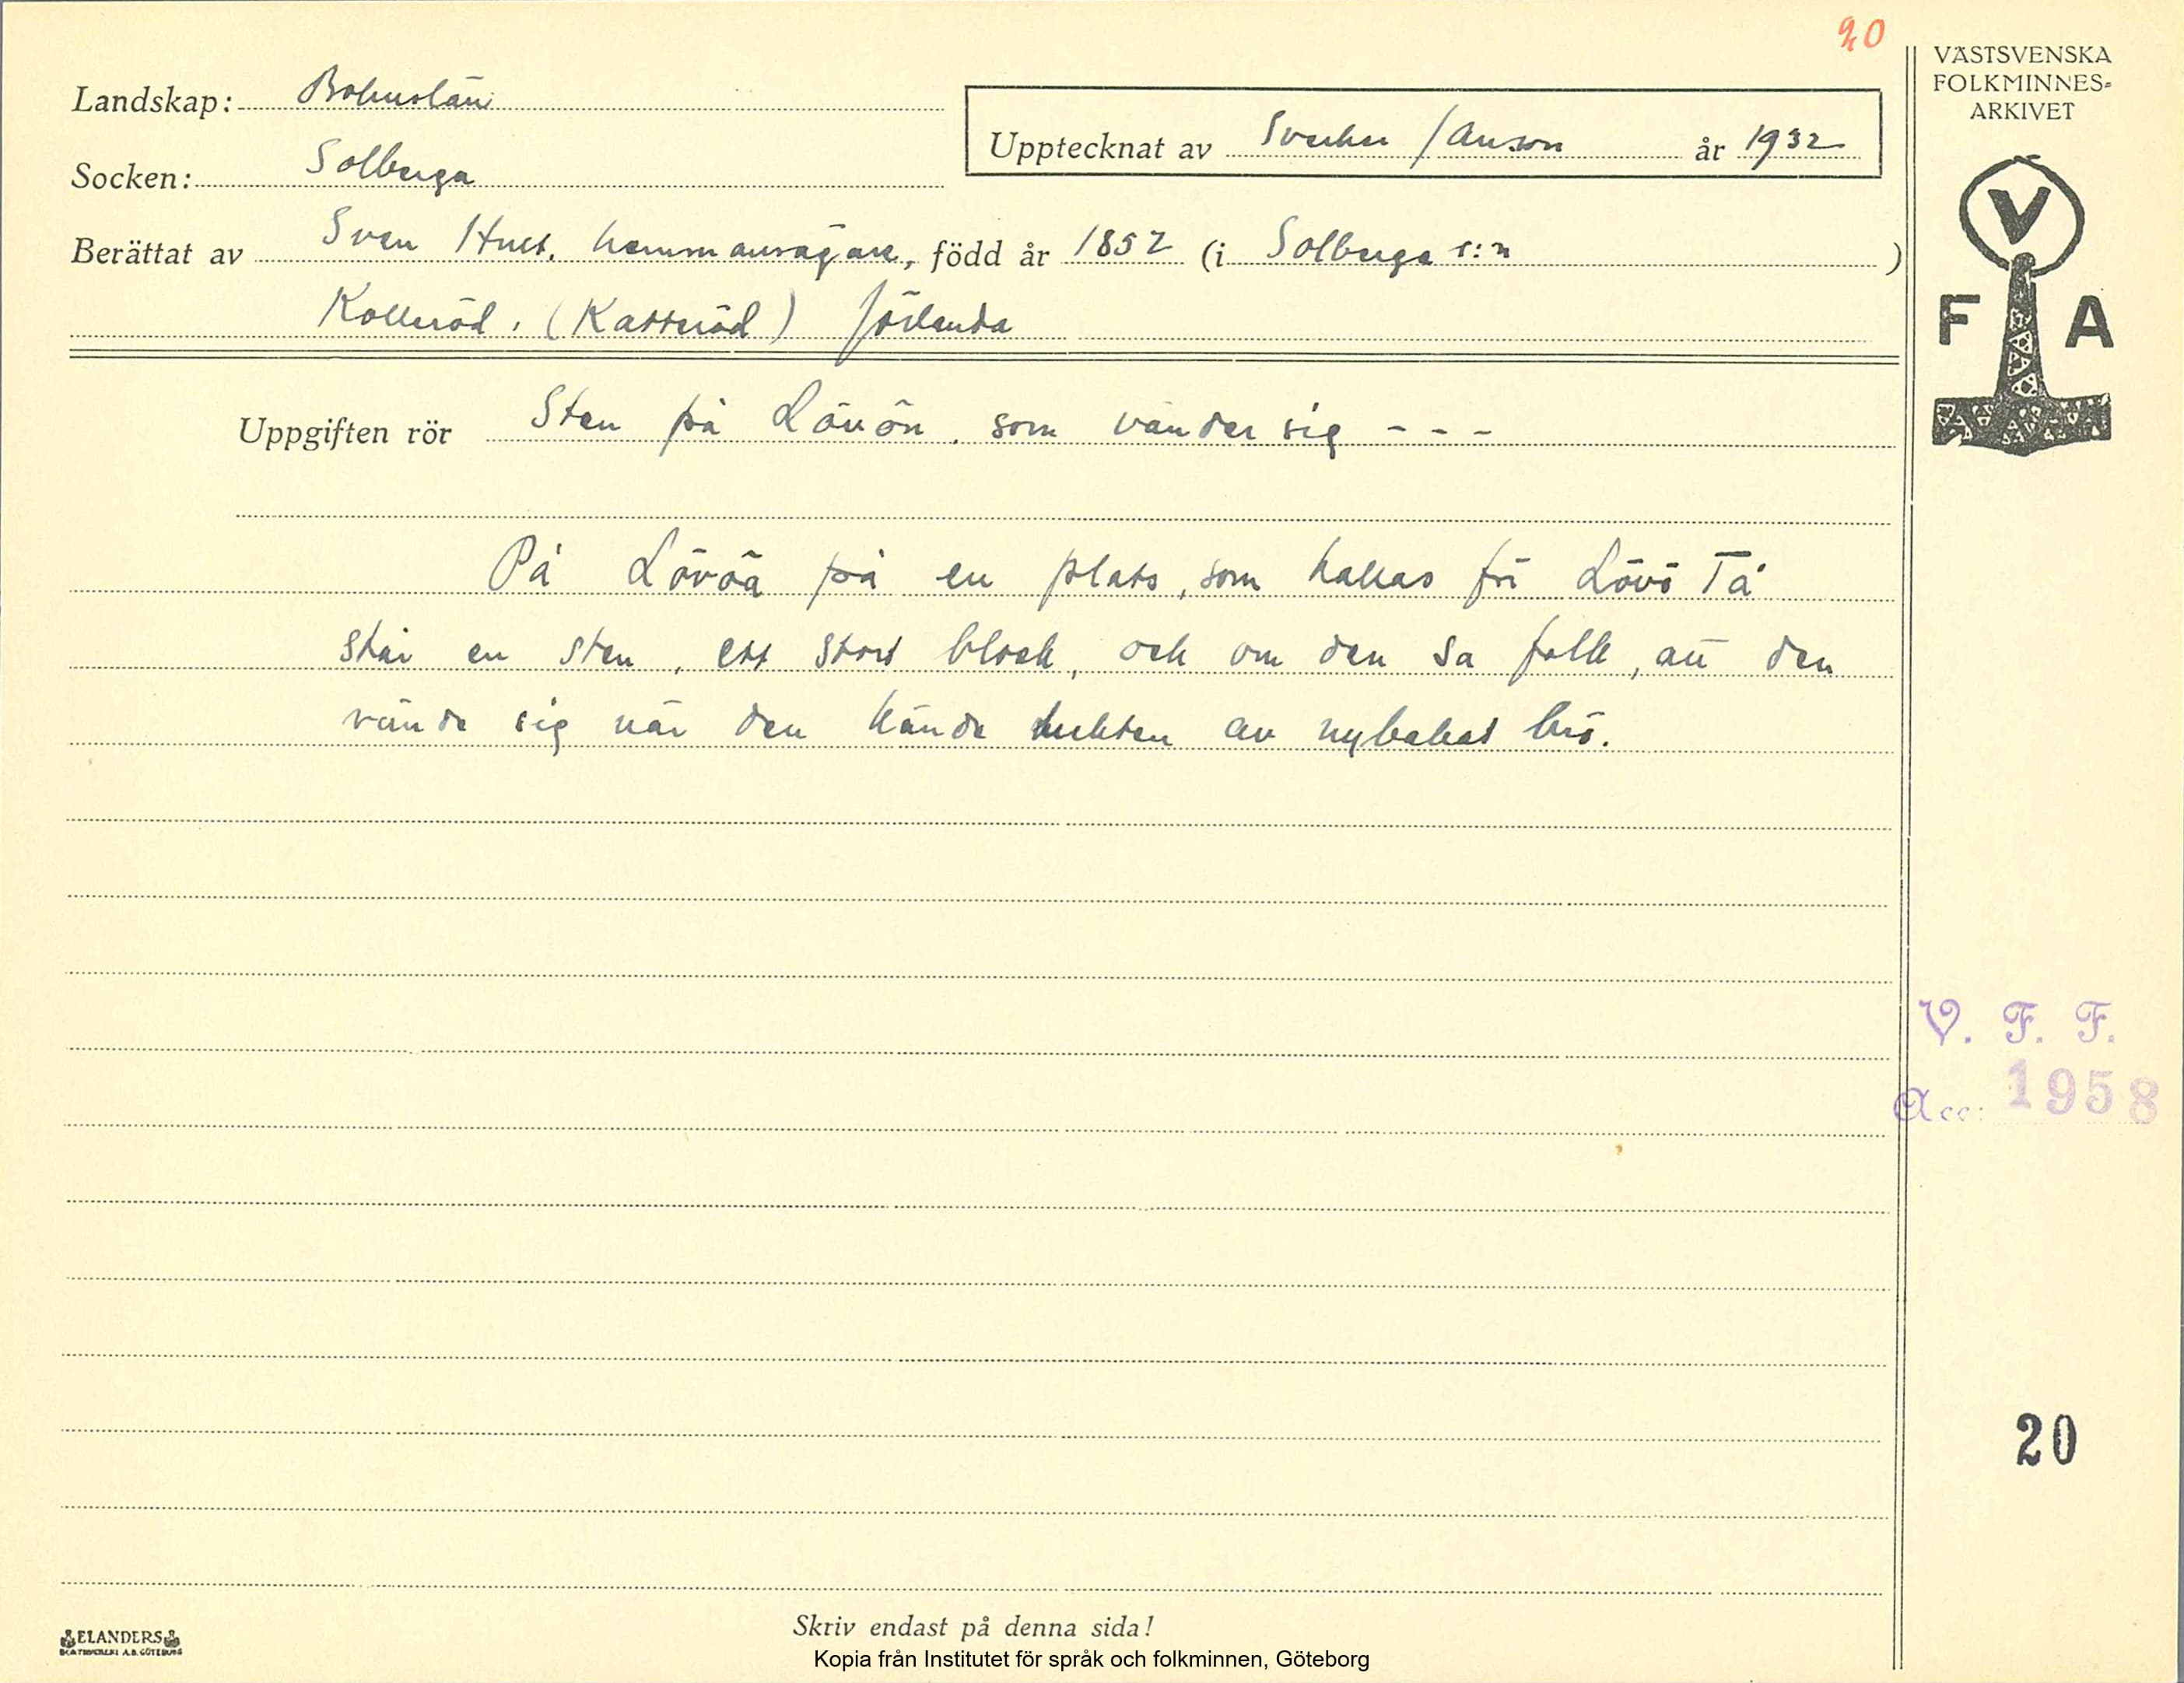 20
VÄSTSVENSKA
FOLKMINNES-
ARKIVET
Landskap: Bohuslän
Upptecknat av Sverker Janson år 1932
Socken: Solberga
Berättat av Sven Hult, hemmansägare, född år 1852 (i Solberga s:n )
Kolleröd, (Katteröd) Jörlanda
V
F A
Uppgiften rör Sten på Lövön, som vänder sig - - -
På Lövöa på en plats, som kallas för Lövö Tå
står en sten, ett stort block, och om den sa folk, att den
vände sig när den kände lukten av nybakat brö.
V. F. F.
Acc: 1958
20
Skriv endast på denna sida!
ELANDERS
BOKTRYCKERI A.B. GÖTEBORG
Kopia från Institutet för språk och folkminnen, Göteborg